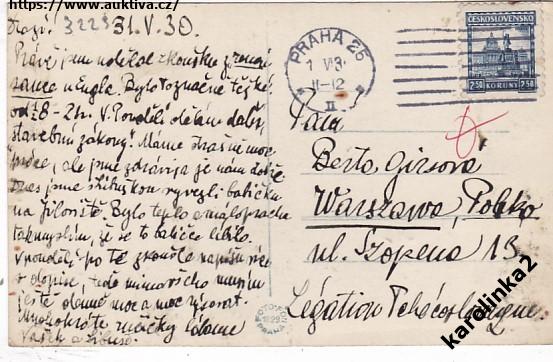 https://www.auktiva.cz/
Drazí! 3223 31.V.30.
Právě jsem udělal zkoušku z renai
sance u Engla. Bylo to značně těžké.
od ½8 - 2h. V Pondělí dělám další,
"stavební zákony". Máme strašně moc
práce, ale jsme zdrávi a je nám dobře
Dnes jsme s vyvezli babičku
na Jíloviště. Bylo teplo a málo prachu
tak myslím, že se to babičce líbilo.
V pondělí po té zkoušce napíšu více
v dopise, teď mimo všeho musím
ještě denně moc a moc rýsovat.
Mnohokráte ručičky líbáme
Vašek a Libuše.
PRAHA 25
1 VI 3
11-12
II
ČESKOSLOVENSKO
2·50 KORUNY 2·50
Paní
Berta Girsová
Warszawa, Polsko
ul. Szopena 13
Légation Tchécoslovaque.
FOTO-FON
1929
PRAHA
karolinka2